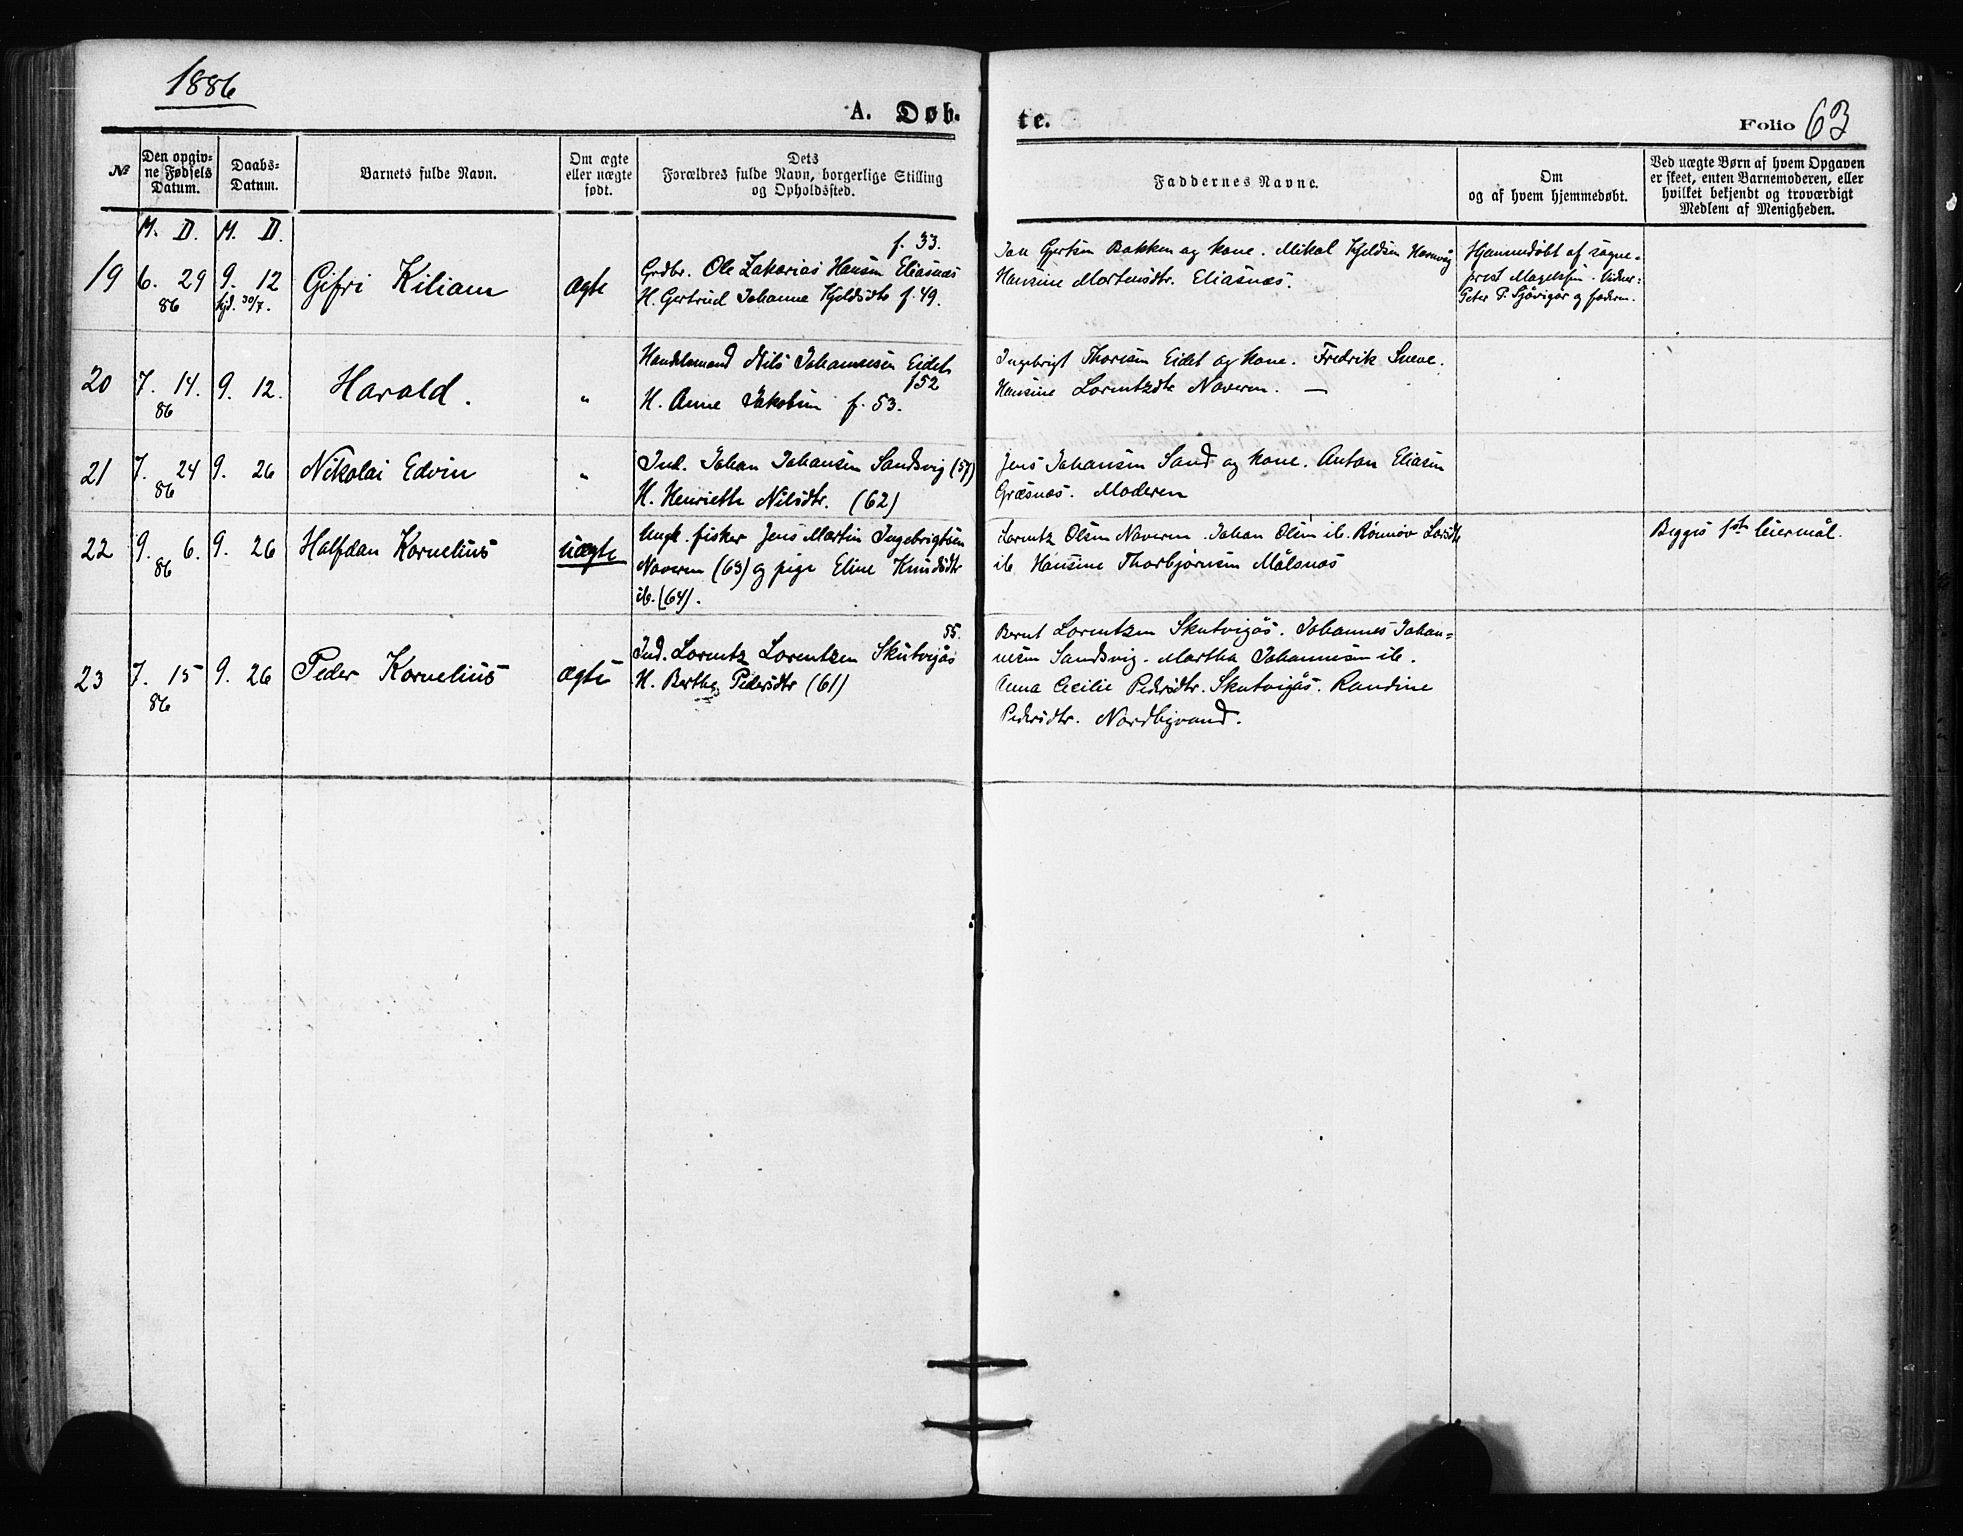 1886
A. Døb-
te.
Folio 63
№
Den opgiv-
ne Fødsels
Datum.
Daabs-
Datum.
Barnets fulde Navn.
Om ægte
eller uægte
født.
Dets
Forældres fulde Navn, borgerlige Stilling
og Opholdssted.
Faddernes Navne.
Om
og af hvem hjemmedøbt.
Ved uægte Børn af hvem Opgaven
er skeet, enten Barnemoderen, eller
hvilket bekjendt og troværdigt
Medlem af Menigheden.
M. D. M. D.
19 6. 29 9. 12 Gifri Kiliam ægte
86 hjd. 30/7.
f. 33.
Grdbr. Ole Zakarias Hansen Eliasnæs
H. Gertrud Johanne Kjeldsdtr f. 49.
Jon Gjertsen Bakken og kone. Mikal Kjeldsen Havnvåg
Hansine Mortensdtr. Eliasnæs.
Hjemmedøbt af sogne-
prest Magelssen. Vidner:
Peter P. Sjåvigor og faderen.
20 7. 14. 9. 12. Harald. "
86
Handelsmand Nils Johannesen Eidet
f 52
H. Anne Jakobsen f. 53.
Ingebrigt Thorsen Eidet og kone. Fredrik Sneve.
Hansine Lorentzdtr Naveren. —
21 7. 24 9. 26 Nikolai Edvin "
86
Ind. Johan Johansen Sandsvig (57)
H. Henriette Nilsdtr. (62)
Jens Johansen Sand og kone. Anton Eliasen
Græsnæs. Moderen
22 9. 6. 9. 26 Halfdan Kornelius uægte
86
Ungk. fisker Jens Martin Ingebrigtsen
Naveren (63) og pige Eline Knudsdtr
ib. (64).
Lorentz Olsen Naveren. Johan Olsen ib. Rønnøv Larsdtr
ib Hansine Thorbjørnsen Målsnæs
Begges 1ste leiermål.
23 7. 15 9. 26 Peder Kornelius ægte
86
55.
Ind. Lorentz Lorentzen Skutvigås
H. Berthe Pedersdtr (61)
Bernt Lorentzen Skutvigås. Johannes Johan-
nesen Sandsvig. Martha Johannesen ib.
Anna Cecilie Pedersdtr. Skutvigås. Randine
Pedersdtr. Nordbyvand.